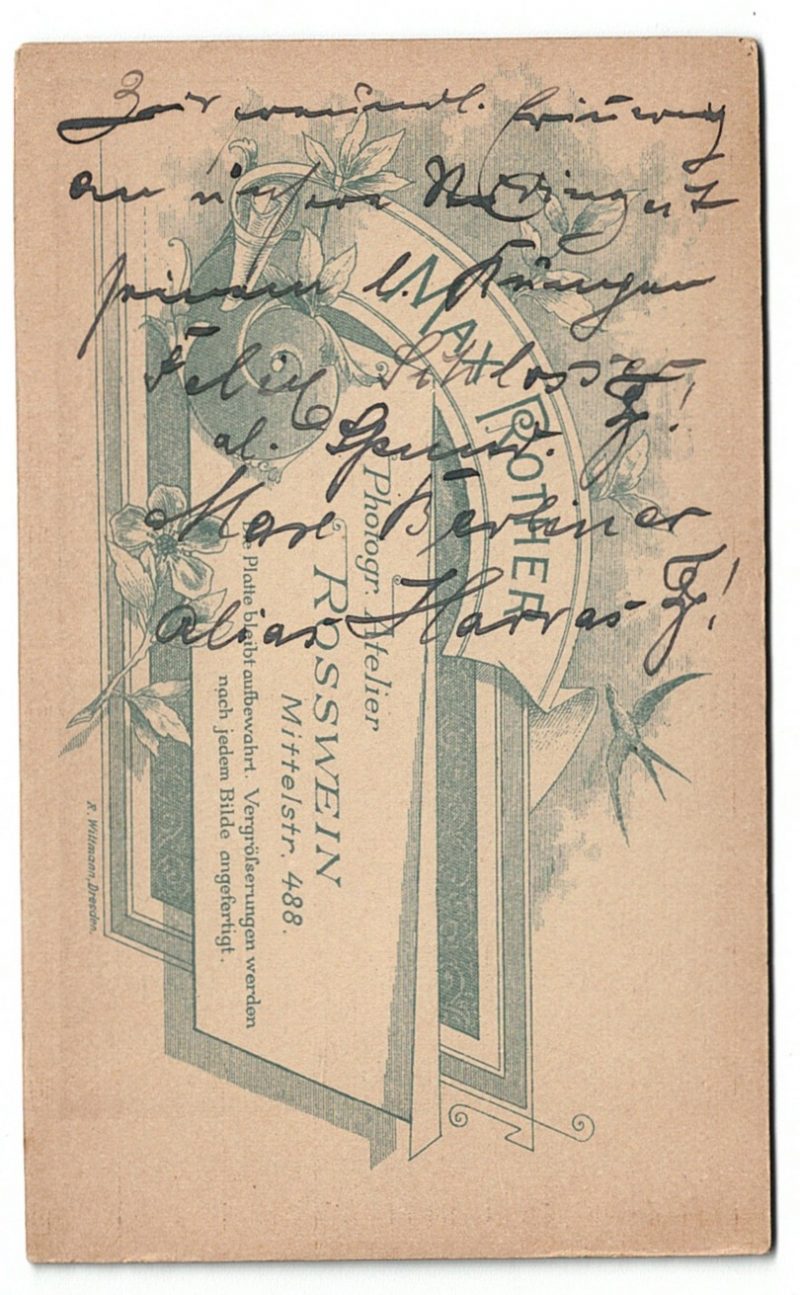 Zur freundl. Erinnerung
an unsere
seinem l.
Felix Schlosser
al. Spund. Z!
Max Berliner
alias Harras Z!
MAX ROTHER
Photogr. Atelier
ROSSWEIN
Mittelstr. 488.
Die Platte bleibt aufbewahrt. Vergröſserungen werden
nach jedem Bilde angefertigt.
R. Willmann, Dresden.